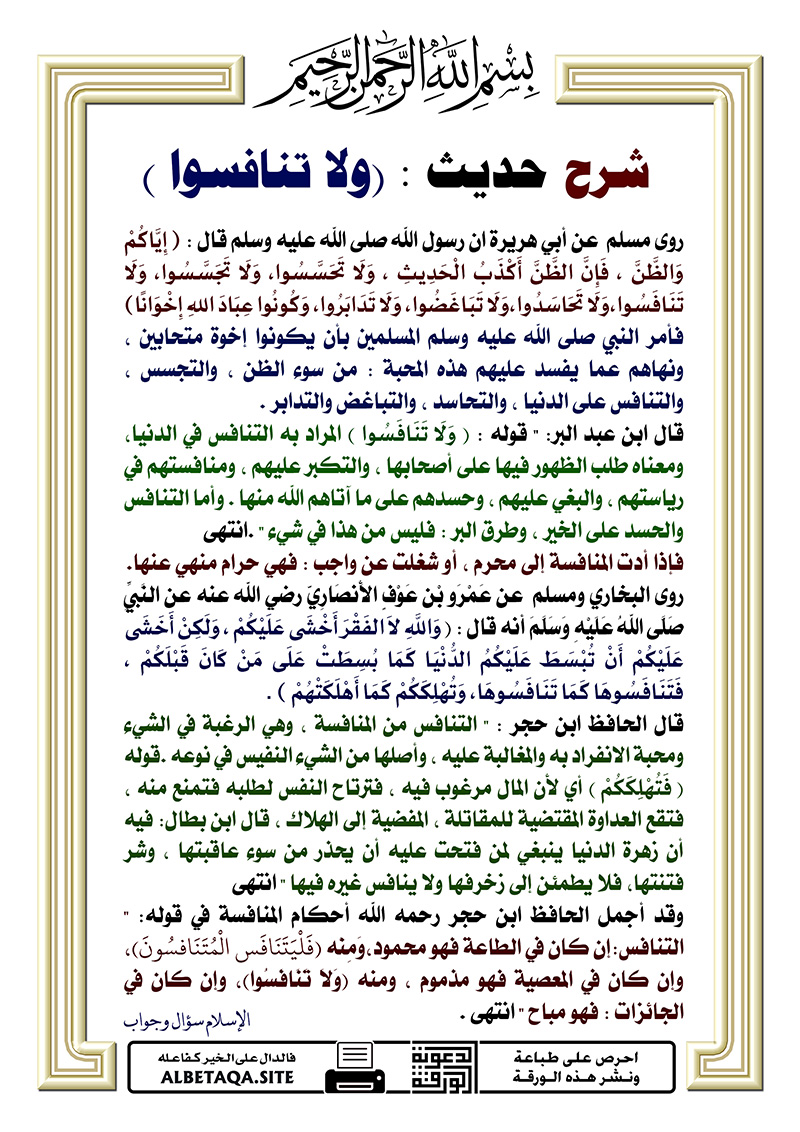 بِسْمِ اللَّهِ الرَّحْمَٰنِ الرَّحِيمِ
شرح حديث : (ولا تنافسوا )
روى مسلم عن أبي هريرة ان رسول الله صلى الله عليه وسلم قال : ( إِيَّاكُمْ
وَالظَّنَّ ، فَإِنَّ الظَّنَّ أَكْذَبُ الْحَدِيثِ ، وَلَا تَحَسَّسُوا، وَلَا تَجَسَّسُوا، وَلَا
تَنَافَسُوا،وَلَا تَحَاسَدُوا،وَلَا تَبَاغَضُوا، وَلَا تَدَابَرُوا، وَكُونُوا عِبَادَ اللهِ إِخْوَانًا)
فأمر النبي صلى الله عليه وسلم المسلمين بأن يكونوا إخوة متحابين ،
ونهاهم عما يفسد عليهم هذه المحبة : من سوء الظن ، والتجسس ،
والتنافس على الدنيا ، والتحاسد ، والتباغض والتدابر .
قال ابن عبد البر: " قوله : ( وَلَا تَنَافَسُوا ) المراد به التنافس في الدنيا،
ومعناه طلب الظهور فيها على أصحابها ، والتكبر عليهم ، ومنافستهم في
رياستهم ، والبغي عليهم ، وحسدهم على ما آتاهم الله منها . وأما التنافس
والحسد على الخير ، وطرق البر : فليس من هذا في شيء " .انتهى
فإذا أدت المنافسة إلى محرم ، أو شغلت عن واجب : فهي حرام منهي عنها.
روى البخاري ومسلم عن عَمْرَو بْن عَوْفٍ الأَنصَارِيَ رضي الله عنه عن النَّبِيِّ
صَلَّى اللهُ عَلَيْهِ وَسَلَّمَ أنه قال : ( وَاللَّهِ لَا الفَقْرَ أَخْشَى عَلَيْكُمْ ، وَلَكِنْ أَخْشَى
عَلَيْكُمْ أَنْ تُبْسَطَ عَلَيْكُمُ الدُّنْيَا كَمَا بُسِطَتْ عَلَى مَنْ كَانَ قَبْلَكُمْ ،
فَتَنَافَسُوهَا كَمَا تَنَافَسُوهَا، وَتُهْلِكَكُمْ كَمَا أَهْلَكَتْهُمْ ) .
قال الحافظ ابن حجر : " التنافس من المنافسة ، وهي الرغبة في الشيء
ومحبة الانفراد به والمغالبة عليه ، وأصلها من الشيء النفيس في نوعه .قوله
( فَتُهْلِكَكُمْ ) أي لأن المال مرغوب فيه ، فترتاح النفس لطلبه فتمنع منه ،
فتقع العداوة المقتضية للمقاتلة ، المفضية إلى الهلاك ، قال ابن بطال: فيه
أن زهرة الدنيا ينبغي لمن فتحت عليه أن يحذر من سوء عاقبتها ، وشر
فتنتها، فلا يطمئن إلى زخرفها ولا ينافس غيره فيها " انتهى
وقد أجمل الحافظ ابن حجر رحمه الله أحكام المنافسة في قوله: "
التنافس: إن كان في الطاعة فهو محمود،وَمِنه (فَلْيَتَنَافَس الْمُتَنَافسُونَ)،
وإن كان في المعصية فهو مذموم ، ومنه (وَلَا تَنافسُوا)، وإن كان في
الجائزات : فهو مباح " انتهى .
الإسلام سؤال وجواب
احرص على طباعة
ونشر هذه الورقة
الورقة الدعوية
فالدال على الخير كفاعله
ALBETAQA.SITE